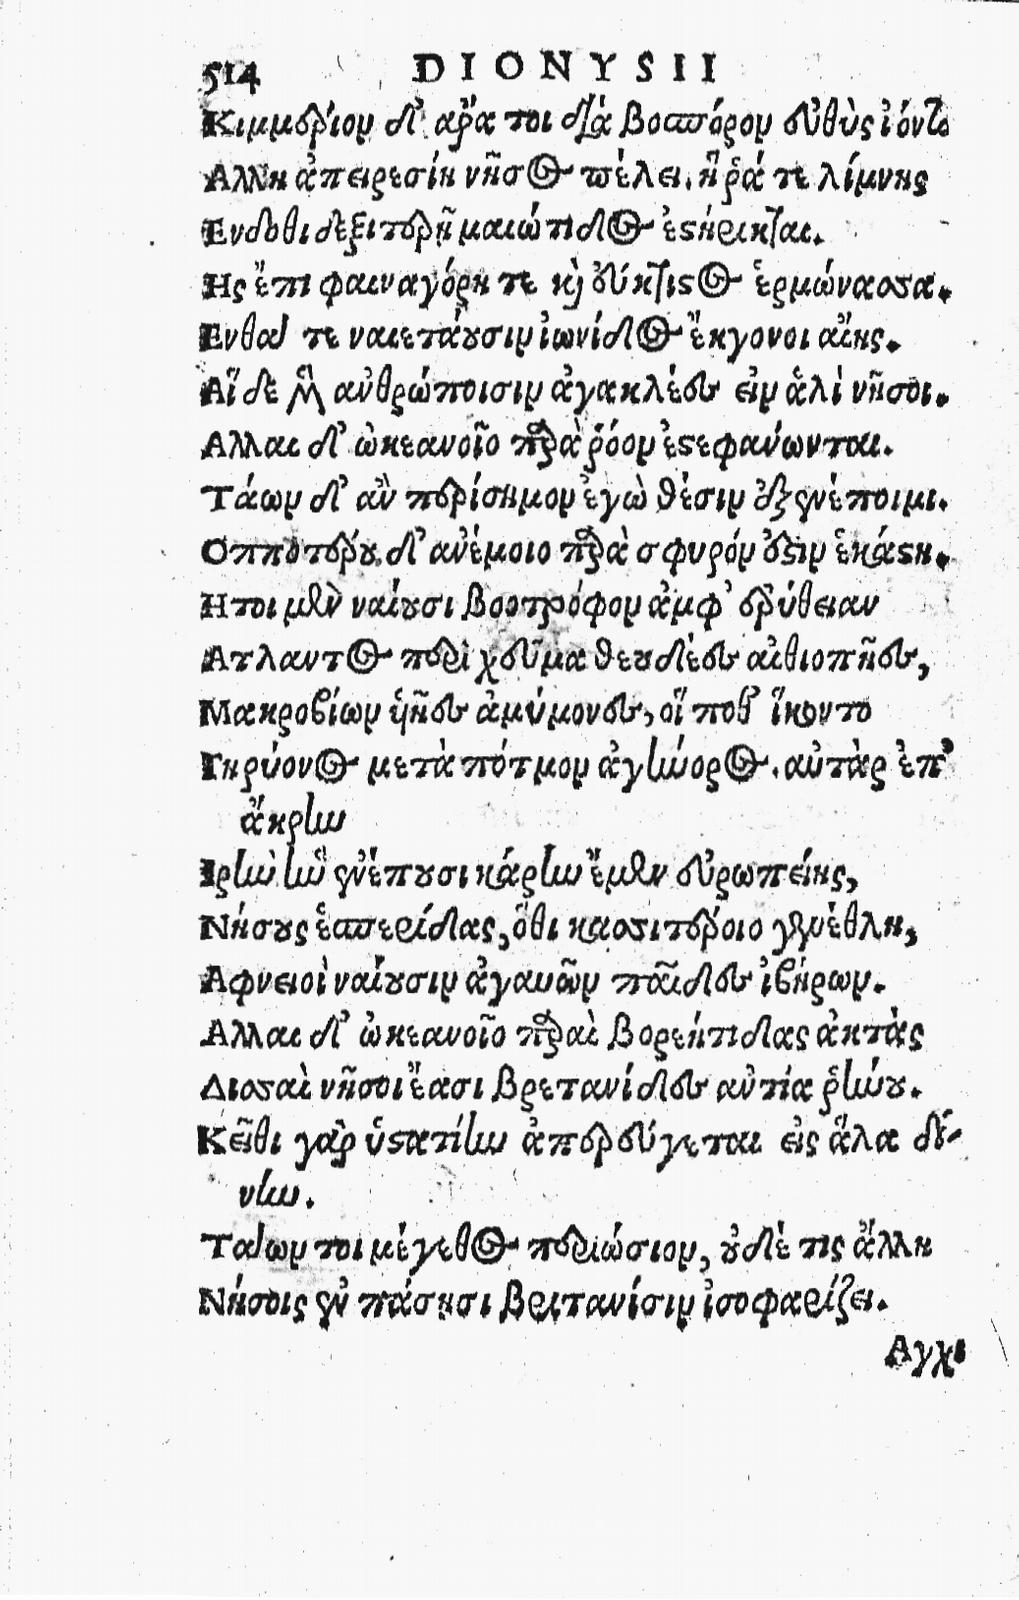 514 DIONYSII
Κιμμέριον δ' ἄρα τοι διὰ βοσπόρον εὐθὺς ἰόντι
Αλλη ἀπειρεσίη νῆσος πέλει. ἥ ῥά τε λίμνης
Ενδοθι δεξιτερῇ μαιώτιδος ἐστήρικται.
Ης ἔπι φαιναγόρη τε καὶ εὔκτιστος ἑρμώνασσα.
Ενθα τε ναιετάουσιν ἰωνίδος ἔκγονοι αἴης.
Αἵδε μὲν ἀνθρώποισιν ἀγακλέες εἰν ἁλὶ νῆσοι.
Αλλαι δ' ὠκεανοῖο παρὰ ῥόον ἐστεφανώνται.
Τάων δ' ἂν περίσημον ἐγὼ θέσιν ἐξενέποιμι.
Οπποτέρου δ' ἀνέμοιο παρὰ σφυρόν ἐστιν ἑκάστη.
Ητοι μὲν ναίουσι βοοτρόφον ἀμφ' ἐρύθειαν
Ατλαντος περὶ χεῦμα θεουδέες αἰθιοπῆες,
Μακροβίων ὑῆες ἀμύμονες, οἵ ποθ' ἵκοντο
Γηρύονος μετὰ πότμον ἀγήνορος. αὐτὰρ ἐπ'
ἄκρην
Ιρὴν ἣν ἐνέπουσι κάρην ἔμεν εὐρωπείης,
Νήσους ἑσπερίδας, ὅθι κασσιτέροιο γενέθλη,
Αφνειοὶ ναίουσιν ἀγαυῶν παῖδες ἰβήρων.
Αλλαι δ' ὠκεανοῖο παραὶ βορεήτιδας ἀκτὰς
Δισσαὶ νῆσοι ἔασι βρετανίδες ἀντία ῥήνου.
Κεῖθι γὰρ ὑστατίην ἀπερεύγεται εἰς ἅλα δί-
νην.
Ταων τοι μέγεθος περιώσιον, οὐδέ τις ἄλλη
Νήσοις ἐν πάσῃσι βριτανίσιν ἰσοφαρίζει.
Αγχι